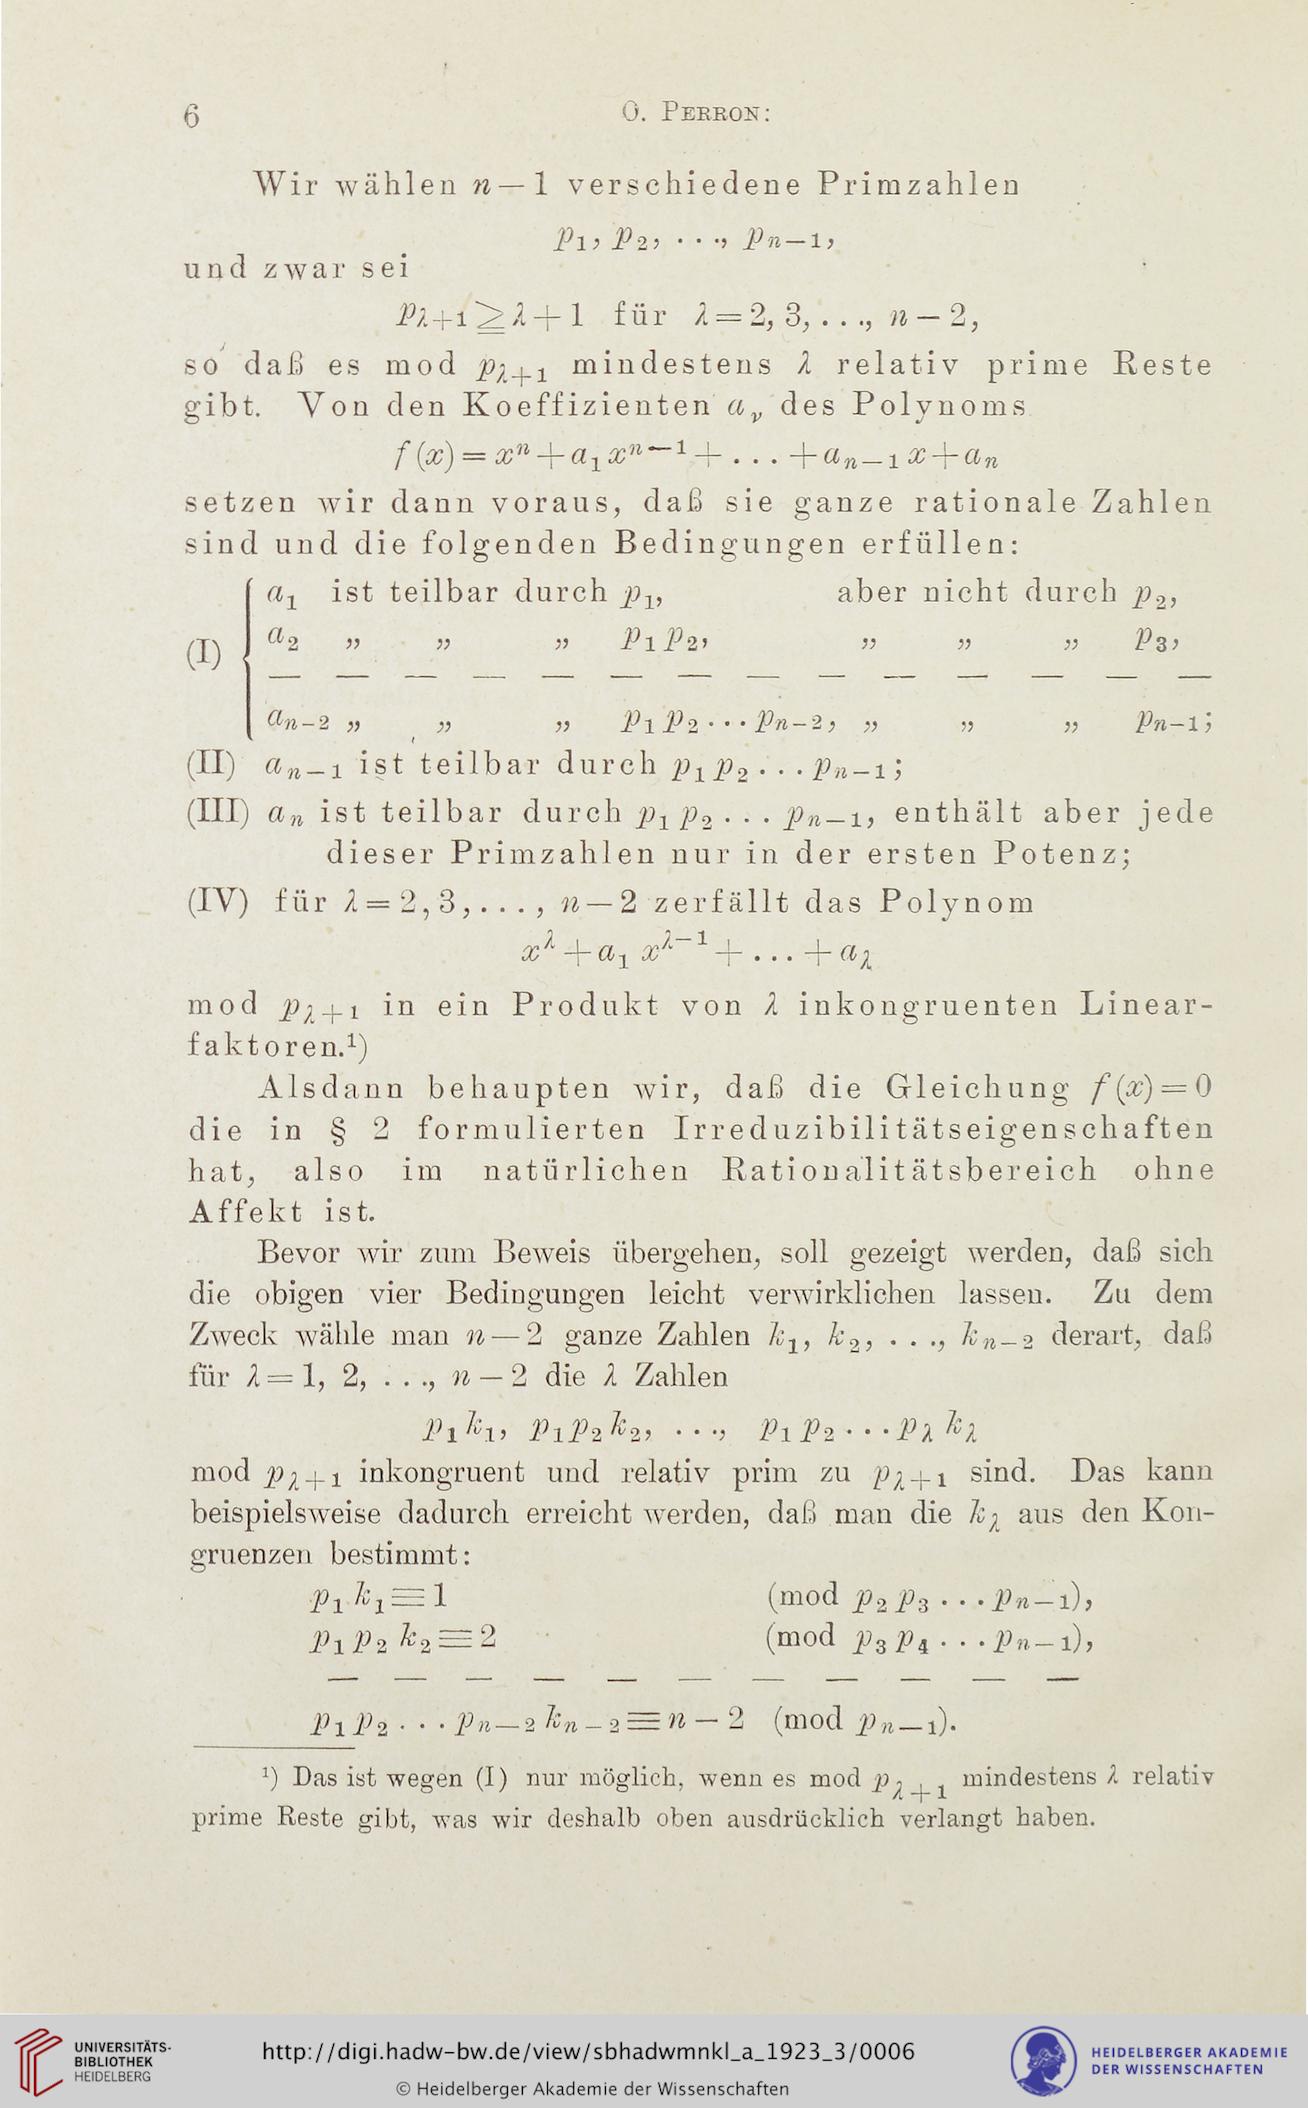 6
O. Perron:
Wir wählen n—1 verschiedene Primzahlen
p₁, p₂, . . ., pₙ₋₁,
und zwar sei
p_{λ+1} ≧ λ+1 für λ = 2, 3, . . ., n — 2,
so daß es mod p_{λ+1} mindestens λ relativ prime Reste
gibt. Von den Koeffizienten a_ν des Polynoms
f(x) = xⁿ + a₁xⁿ⁻¹ + . . . + aₙ₋₁x + aₙ
setzen wir dann voraus, daß sie ganze rationale Zahlen
sind und die folgenden Bedingungen erfüllen:
a₁ ist teilbar durch p₁, aber nicht durch p₂,
(I) a₂ „ „ „ p₁p₂, „ „ „ p₃,
— — — — — — — — — — — — — —
aₙ₋₂ „ „ „ p₁p₂ . . . pₙ₋₂, „ „ „ pₙ₋₁;
(II) aₙ₋₁ ist teilbar durch p₁p₂ . . . pₙ₋₁;
(III) aₙ ist teilbar durch p₁p₂ . . . pₙ₋₁, enthält aber jede
dieser Primzahlen nur in der ersten Potenz;
(IV) für λ = 2, 3, . . . , n — 2 zerfällt das Polynom
x^λ + a₁x^{λ−1} + . . . + a_λ
mod p_{λ+1} in ein Produkt von λ inkongruenten Linear-
faktoren.¹)
Alsdann behaupten wir, daß die Gleichung f(x) = 0
die in § 2 formulierten Irreduzibilitätseigenschaften
hat, also im natürlichen Rationalitätsbereich ohne
Affekt ist.
Bevor wir zum Beweis übergehen, soll gezeigt werden, daß sich
die obigen vier Bedingungen leicht verwirklichen lassen. Zu dem
Zweck wähle man n — 2 ganze Zahlen k₁, k₂, . . ., kₙ₋₂ derart, daß
für λ = 1, 2, . . ., n — 2 die λ Zahlen
p₁k₁, p₁p₂k₂, . . ., p₁p₂ . . . p_λ k_λ
mod p_{λ+1} inkongruent und relativ prim zu p_{λ+1} sind. Das kann
beispielsweise dadurch erreicht werden, daß man die k_λ aus den Kon-
gruenzen bestimmt:
p₁k₁ ≡ 1 (mod p₂p₃ . . . pₙ₋₁),
p₁p₂k₂ ≡ 2 (mod p₃p₄ . . . pₙ₋₁),
— — — — — — — — — — —
p₁p₂ . . . pₙ₋₂kₙ₋₂ ≡ n — 2 (mod pₙ₋₁).
¹) Das ist wegen (I) nur möglich, wenn es mod p_{λ+1} mindestens λ relativ
prime Reste gibt, was wir deshalb oben ausdrücklich verlangt haben.
UNIVERSITÄTS-
BIBLIOTHEK
HEIDELBERG
http://digi.hadw-bw.de/view/sbhadwmnkl_a_1923_3/0006
© Heidelberger Akademie der Wissenschaften
HEIDELBERGER AKADEMIE
DER WISSENSCHAFTEN